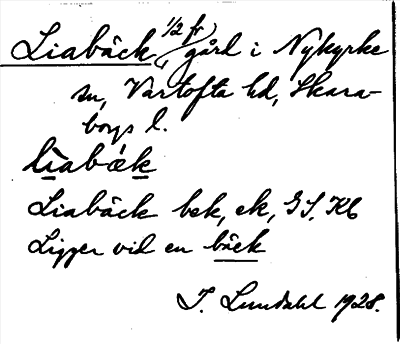 Liabäck, 1/2 fr, gård i Nykyrke
sn, Vartofta hd, Skara-
borgs l.
lìabǽk
Liabäck bek, ek, GS. Kb
Ligger vid en bäck
I. Lundahl 1928.